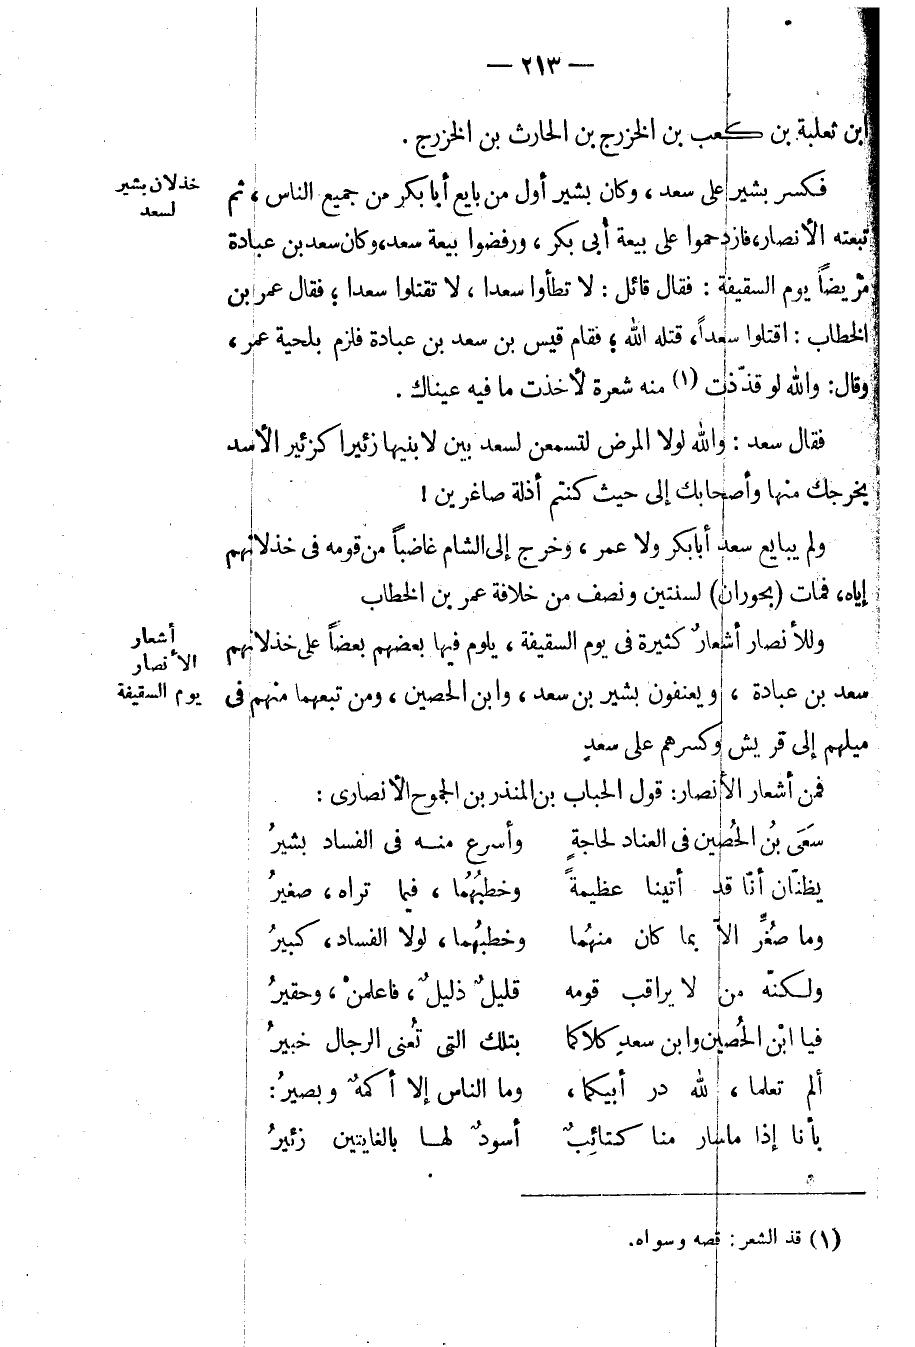 — ٢١٣ —
ابن ثعلبة بن كعب بن الخزرج بن الحارث بن الخزرج .
خذلان بشير
لسعد
فكسر بشير على سعد ، وكان بشير أول من بايع أبا بكر من جميع الناس ، ثم
تبعته الأنصار، فازدحموا على بيعة أبى بكر ، ورفضوا بيعة سعد، وكان سعد بن عبادة
مريضاً يوم السقيفة : فقال قائل : لا تطأوا سعدا ، لا تقتلوا سعدا ؛ فقال عمر بن
الخطاب : اقتلوا سعداً، قتله الله ؛ فقام قيس بن سعد بن عبادة فلزم بلحية عمر ،
وقال: والله لو قذّذت (١) منه شعرة لأخذت ما فيه عيناك .
فقال سعد : والله لولا المرض لتسمعن لسعد بين لابتيها زئيرا كزئير الأسد
يخرجك منها وأصحابك إلى حيث كنتم أذلة صاغرين !
ولم يبايع سعد أبابكر ولا عمر ، وخرج إلى الشام غاضباً من قومه فى خذلانهم
إياه، فمات (بحوران) لسنتين ونصف من خلافة عمر بن الخطاب
أشعار
الأنصار
يوم السقيفة
وللأنصار أشعارٌ كثيرة فى يوم السقيفة ، يلوم فيها بعضهم بعضاً على خذلانهم
سعد بن عبادة ، ويعنفون بشير بن سعد ، وابن الحصين ، ومن تبعهما منهم فى
ميلهم إلى قريش وكسرهم على سعدٍ
فمن أشعار الأنصار: قول الحباب بن المنذر بن الجموح الأنصارى :
سَعَى بنُ الحُصين فى العناد لحاجةٍ وأسرع منه فى الفساد بشيرُ
يظنّان أنّا قد أتينا عظيمةً وخطبُهُما ، فيما تراه ، صغيرُ
وما صُغِّر الاّ بما كان منهُما وخطبهُما ، لولا الفساد، كبيرُ
ولكنّه من لا يراقب قومه قليلٌ ذليلٌ ، فاعلمنْ ، وحقيرُ
فيا ابْن الحُصين وابن سعدٍ كلاكما بتلك التى تُعنى الرجال خبيرُ
ألم تعلما ، لله در أبيكما ، وما الناس إلا أكمهٌ وبصيرُ:
بأنا إذا ما سار منا كتائبٌ أسودٌ لها بالغابتين زئيرُ
(١) قذ الشعر : قصه وسواه.